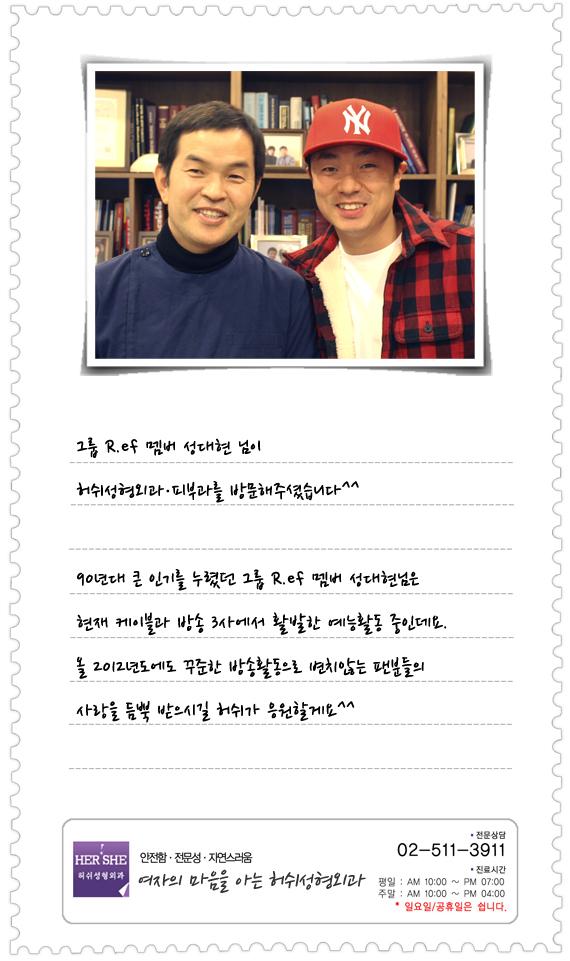 NY
그룹 R.ef 멤버 성대현 님이
허쉬성형외과·피부과를 방문해주셨습니다^^
90년대 큰 인기를 누렸던 그룹 R.ef 멤버 성대현님은
현재 케이블과 방송 3사에서 활발한 예능활동 중인데요.
올 2012년도에도 꾸준한 방송활동으로 변치않는 팬분들의
사랑을 듬뿍 받으시길 허쉬가 응원할게요^^
HER SHE
허쉬성형외과
안전함 · 전문성 · 자연스러움
여자의 마음을 아는 허쉬성형외과
• 전문상담
02-511-3911
• 진료시간
평일 : AM 10:00 ~ PM 07:00
주말 : AM 10:00 ~ PM 04:00
* 일요일/공휴일은 쉽니다.